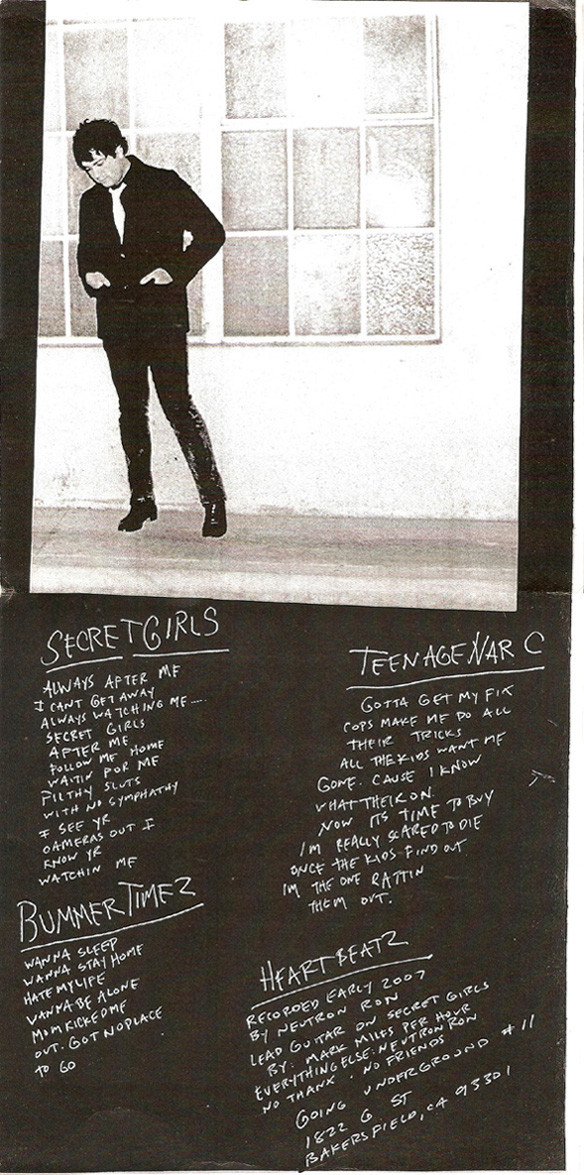 SECRET GIRLS
ALWAYS AFTER ME
I CANT GET AWAY
ALWAYS WATCHING ME.....
SECRET GIRLS
AFTER ME
FOLLOW ME HOME
WAITIN FOR ME
FILTHY SLUTS
WITH NO SYMPHATHY
I SEE YR
CAMERAS OUT I
KNOW YR
WATCHIN ME
BUMMER TIMEZ
WANNA SLEEP
WANNA STAY HOME
HATE MY LIFE
WANNA BE ALONE
MOM KICKED ME
OUT. GOT NO PLACE
TO GO
TEENAGE NARC
GOTTA GET MY FIX
COPS MAKE ME DO ALL
THEIR TRICKS
ALL THE KIDS WANT ME
GONE. CAUSE I KNOW
WHAT THEIR ON.
NOW ITS TIME TO BUY
I'M REALLY SCARED TO DIE
ONCE THE KIDS FIND OUT
IM THE ONE RATTIN
THEM OUT.
HEARTBEATZ
RECORDED EARLY 2007
BY NEUTRON RON
LEAD GUITAR ON SECRET GIRLS
BY: MARK MILES PER HOUR
EVERYTHING ELSE: NEUTRON RON
NO THANX - NO FRIENDS
GOING UNDERGROUND #11
1822 G. ST
BAKERSFIELD, CA 93301